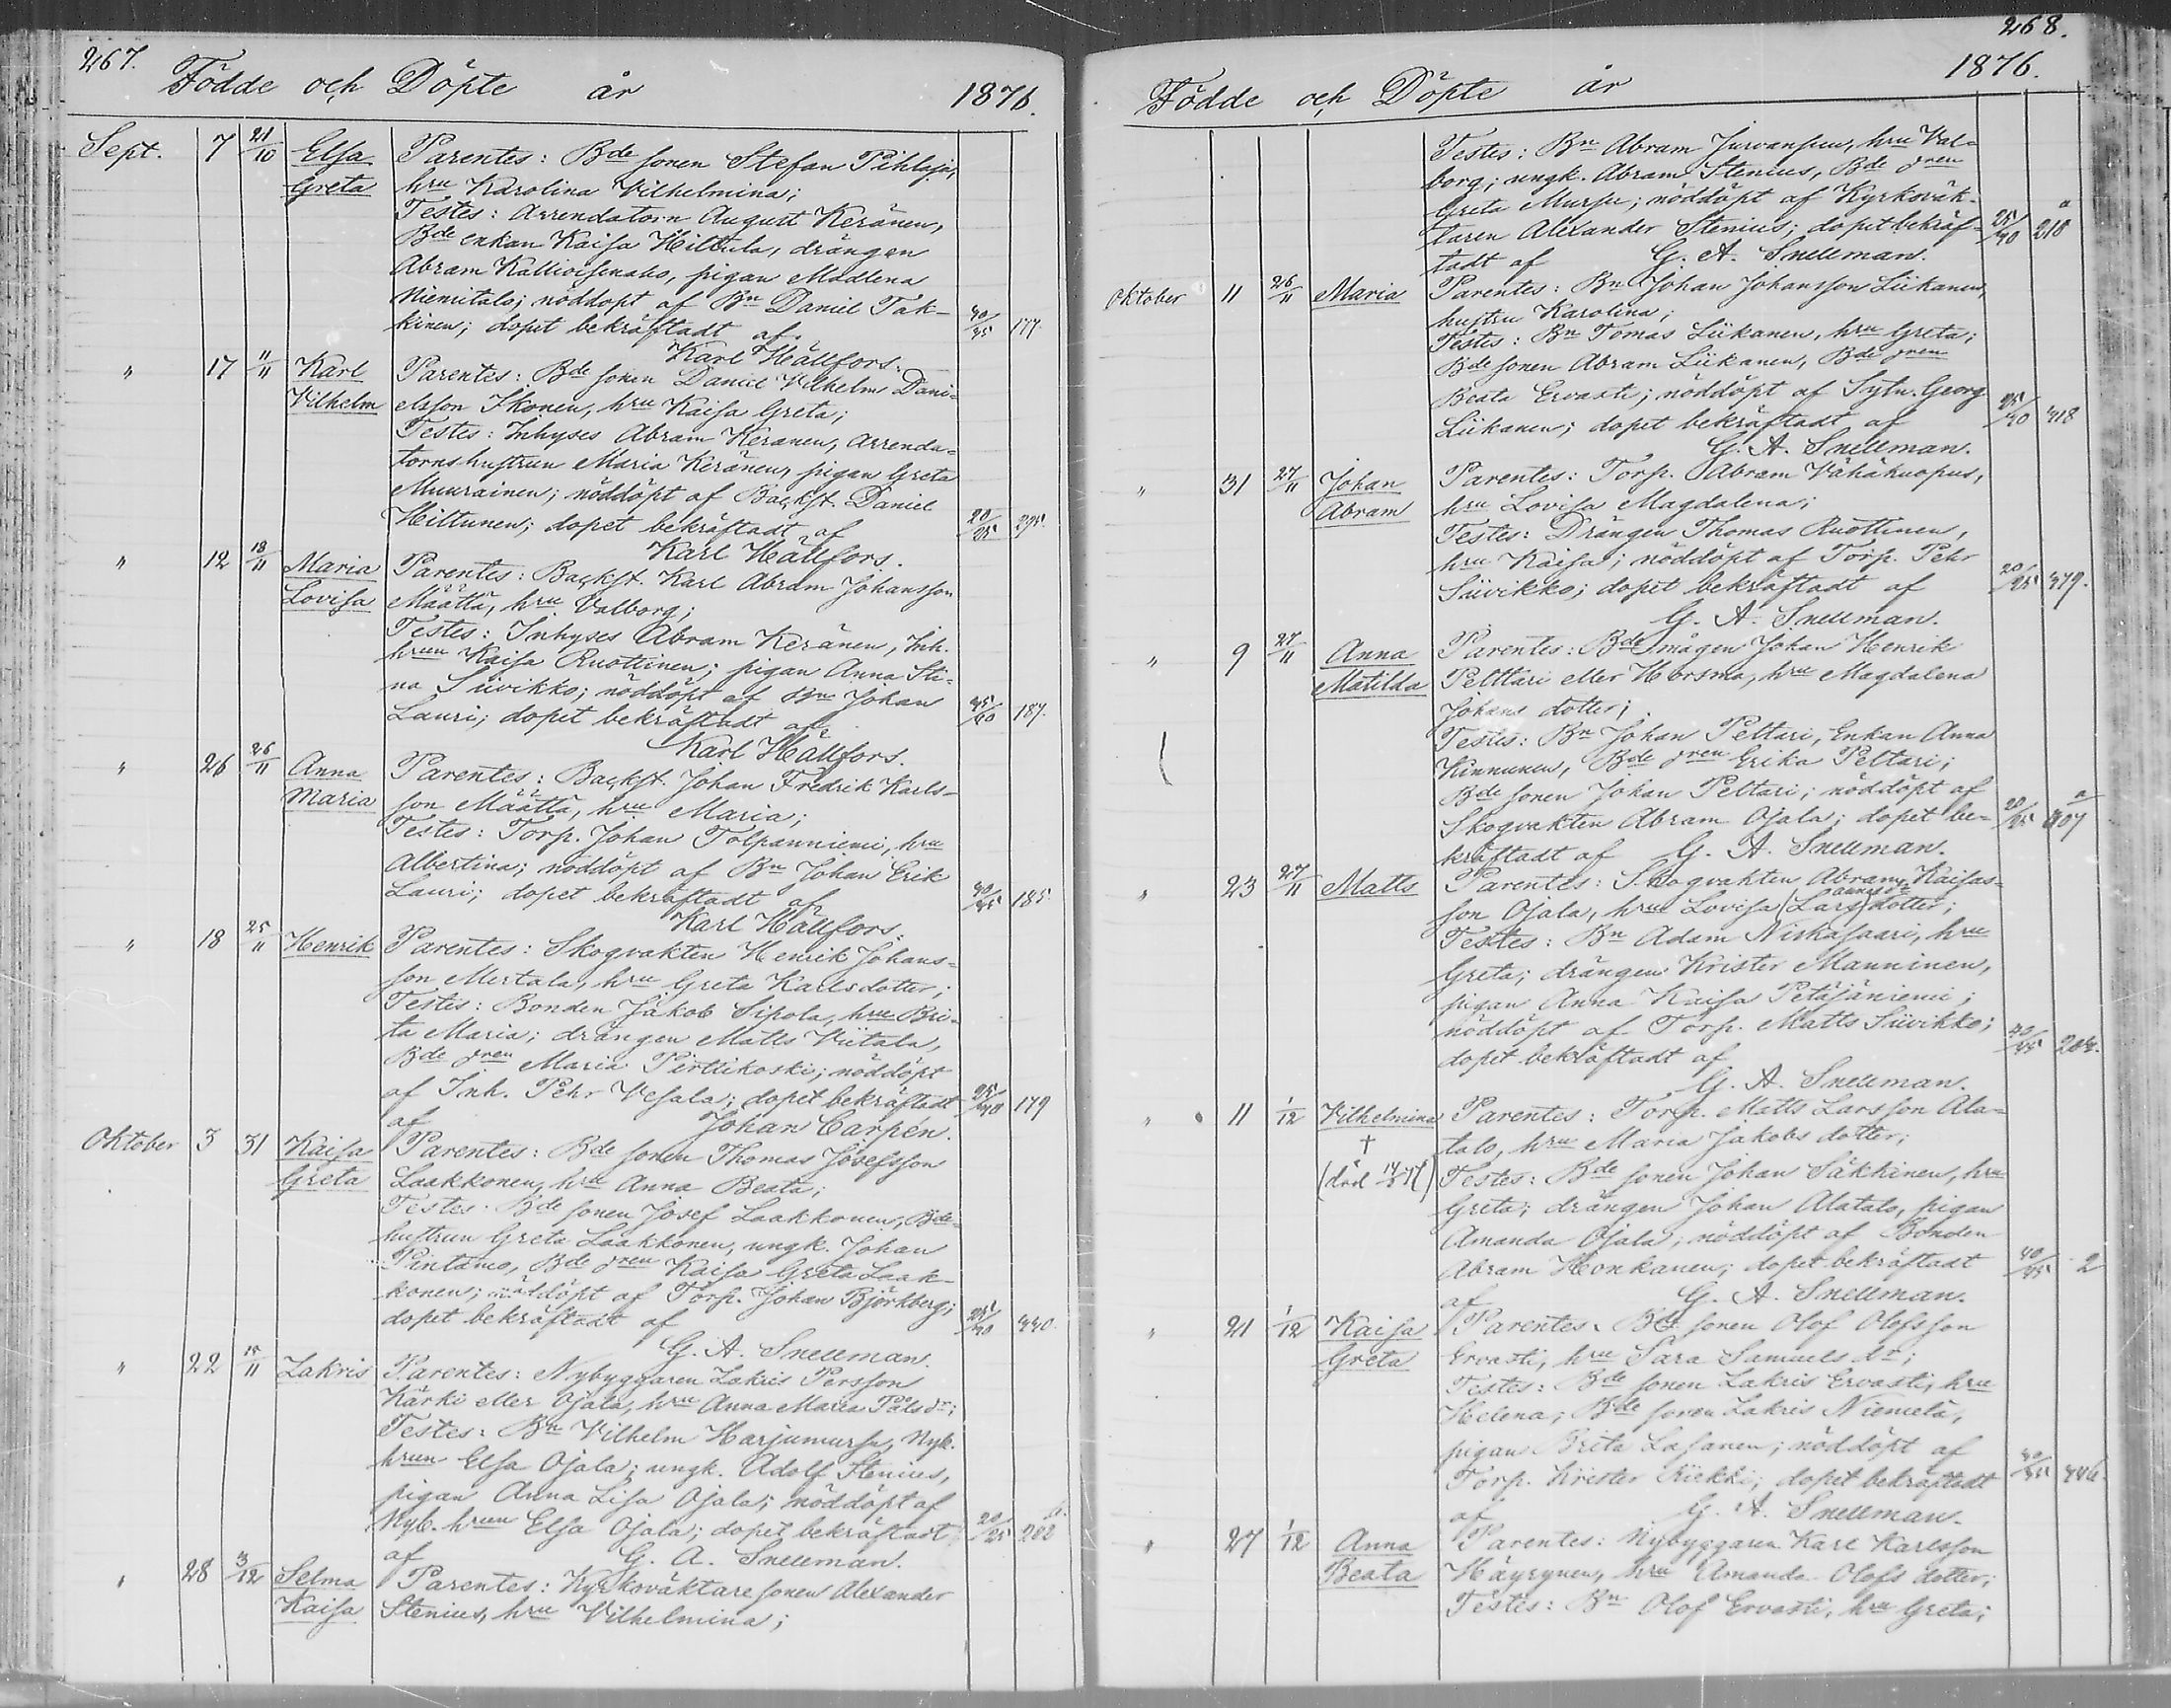 267.
Födde och Döpte år 1876.
Sept. 7 21/10 Elsa Parentes: Bde sonen Stefan Pihlaja,
Greta hru Karolina Vilhelmina;
Testes: Arrendatorn August Keränen,
Bde enkan Kaisa Hiltula, drängen
Abram Kallioisenaho, pigan Madlena
Niemitalo; nöddöpt af Bn Daniel Tak-
kinen; dopet bekräftadt af 40/45 177.
Karl Hällfors.
" 17 11/11 Karl Parentes: Bde sonen Daniel Vilhelm Dani-
Vilhelm elsson Ikonen, hru Kaisa Greta;
Testes: Inhyses Abram Keränen, arrenda-
tornshustrun Maria Keränen, pigan Greta
Muurainen; nöddöpt af Backst. Daniel
Hiltunen; dopet bekräftadt af 20/25 295.
Karl Hällfors.
" 12 18/11 Maria Parentes: Backst. Karl Abram Johansson
Lovisa Määttä, hru Valborg;
Testes: Inhyses Abram Keränen, Inh.
hrun Kaisa Ruottinen; pigan Anna Sti-
na Siivikko; nöddöpt af Bn Johan
Lauri; dopet bekräftadt af 35/40 187.
Karl Hällfors.
" 26 26/11 Anna Parentes: Backst. Johan Fredrik Karls-
Maria son Määttä, hru Maria;
Testes: Torp. Johan Tolpanniemi, hru
Albertina; nöddöpt af Bn Johan Erik
Lauri; dopet bekräftadt af 40/45 185.
Karl Hällfors.
" 18 25/11 Henrik Parentes: Skogvakten Henrik Johans-
son Mertala, hru Greta Karlsdotter;
Testis: Bonden Jakob Sipola, hru Bri-
ta Maria; drängen Matts Viitala,
Bde dren Maria Pirttikoski; nöddöpt
af Inh. Pehr Vesala; dopet bekräftadt 35/40 179
af Johan Carpén.
Oktober 3 31 Kaisa Parentes: Bde sonen Thomas Josefsson
Greta Laakkonen, hru Anna Beata;
Testes: Bde sonen Josef Laakkonen, Bde-
hustrun Greta Laakkonen, ungk. Johan
Pintamo, Bde dren Kaisa Greta Laak-
konen; nöddöpt af Torp. Johan Björkberg;
dopet bekräftadt af 25/30 440.
G. A. Snellman.
" 22 15/11 Zakris Parentes: Nybyggaren Zakris Persson
Kärki eller Ojala, hru Anna Maria Påls dr;
Testes: Bn Vilhelm Harjumursu, Nyb.
hrun Elsa Ojala; ungk. Adolf Stenius,
pigan Anna Lisa Ojala; nöddöpt af
Nyb. hrun Elsa Ojala; dopet bekräftadt 20/25 282
af G. A. Snellman.
" 28 3/12 Selma Parentes: Kyrkoväktaresonen Alexander
Kaisa Stenius, hru Vilhelmina;
268.
Födde och Döpte år 1876.
Testes: Bn Abram Jurvansuu, hru Val-
borg; ungk. Abram Stenius, Bde dren
Greta Mursu; nöddöpt af Kyrkoväk-
taren Alexander Stenius; dopet bekräf- 25/30 218 a
tadt af G. A. Snellman.
Oktober 11 26/11 Maria Parentes: Bn Johan Johansson Liikanen,
hustru Karolina;
Testes: Bn Tomas Liikanen, hru Greta;
Bde sonen Abram Liikanen, Bde dren
Beata Ervasti; nöddöpt af Sytn. Georg
Liikanen; dopet bekräftadt af 35/40 418
G. A. Snellman.
" 31 27/11 Johan Parentes: Torp. Abram Vähäkuopus,
Abram hru Lovisa Magdalena;
Testes: Drängen Thomas Ruottinen,
hru Kaisa; nöddöpt af Torp. Pehr
Siivikko; dopet bekräftadt af 20/25 479.
G. A. Snellman.
" 9 27/11 Anna Parentes: Bde mågen Johan Henrik
Matilda Pelttari eller Horsma, hru Magdalena
Johans dotter;
Testes: Bn Johan Peltari, Enkan Anna
Kinnunen, Bde dren Erika Peltari;
Bde sonen Johan Peltari; nöddöpt af
Skogvakten Abram Ojala; dopet be- 20/25 407 a
kräftadt af G. A. Snellman.
" 23 27/11 Matts Parentes: Skogvakten Abram Kaisas-
son Ojala, hru Lovisa (Lars) dotter;
Testes: Bn Adam Niskasaari, hru
Greta; drängen Krister Manninen,
pigan Anna Kaisa Petäjäniemi;
nöddöpt af Torp. Matts Siivikko; 40/45 204.
dopet bekräftadt af
G. A. Snellman.
" 11 1/12 Vilhelmina Parentes: Torp. Matts Larsson Ala-
† talo, hru Maria Jakobs dotter;
(död Testes: Bde sonen Johan Säkkinen, hru
Greta; drängen Johan Alatalo, pigan
Amanda Ojala; nöddöpt af Bonden
Abram Honkanen; dopet bekräftadt 40/45 2
af G. A. Snellman.
" 21 1/12 Kaisa Parentes: Bde sonen Olof Olofsson
Greta Ervasti, hru Sara Samuels dr;
Testes: Bde sonen Zakris Ervasti, hru
Helena; Bde sonen Zakris Niemelä,
pigan Brita Lasanen; nöddöpt af
Torp. Krister Kiekki; dopet bekräftadt 446.
af G. A. Snellman.
" 27 1/12 Anna Parentes: Nybyggaren Karl Karlsson
Beata Häyrynen, hru Amanda Olofs dotter;
Testes: Bn Olof Ervasti, hru Greta;